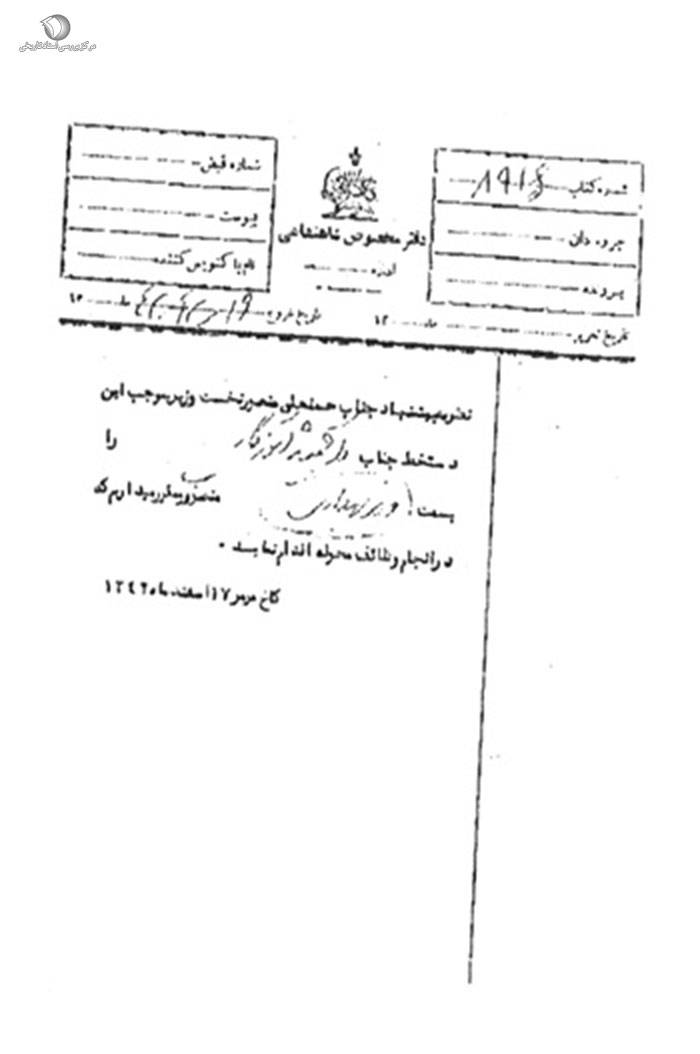 مرکز بررسی اسناد تاریخی
شماره کتاب
جزوه دان
پرونده
دفتر مخصوص شاهنشاهی
شماره قبض
پیوست
نام پا کنویس کننده
تاریخ تحریر ماه ۱۳
تاریخ خروج ۱۹ ماه ۱۳
نظر به پیشنهاد جناب حسنعلی منصور نخست وزیر بموجب این
دستخط جناب دکتر جمشید آموزگار را
بسمت وزیر بهداری منصوب و مقرر میداریم که
در انجام وظائف محوله اقدام نمایند .
کاخ مرمر ۱۷ اسفند ماه ۱۳۴۲